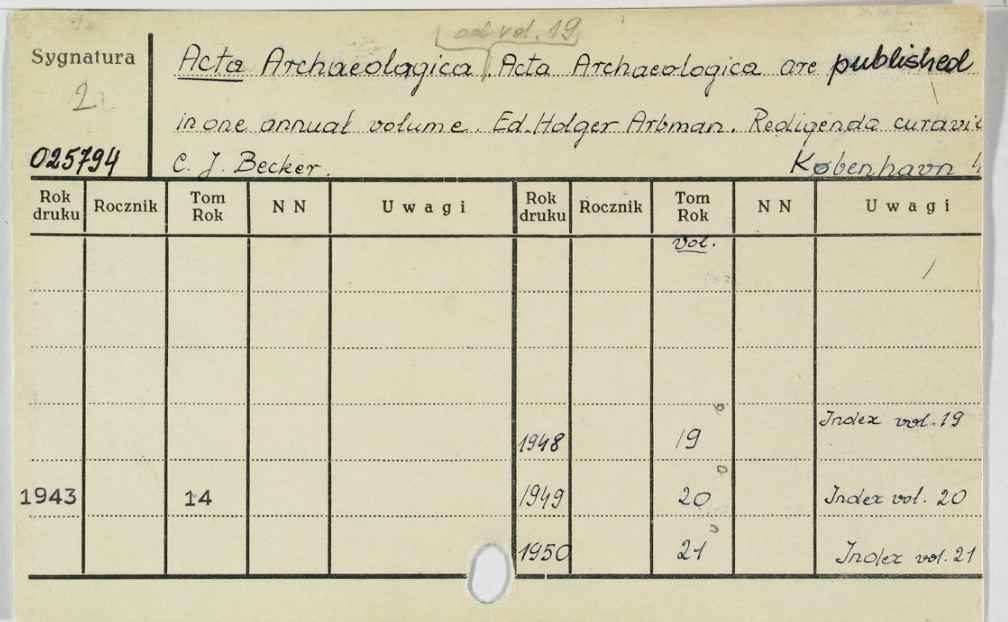 od vol. 19
Sygnatura
Acta Archaeologica, Acta Archaeologica are published
2
in one annual volume. Ed. Holger Arbman. Redigenda curavi
025794
C. J. Becker. København
Rok druku Rocznik Tom Rok NN Uwagi Rok druku Rocznik Tom Rok NN Uwagi
vol.
1948 19 Index vol. 19
1943 14 1949 20 Index vol. 20
1950 21 Index vol. 21